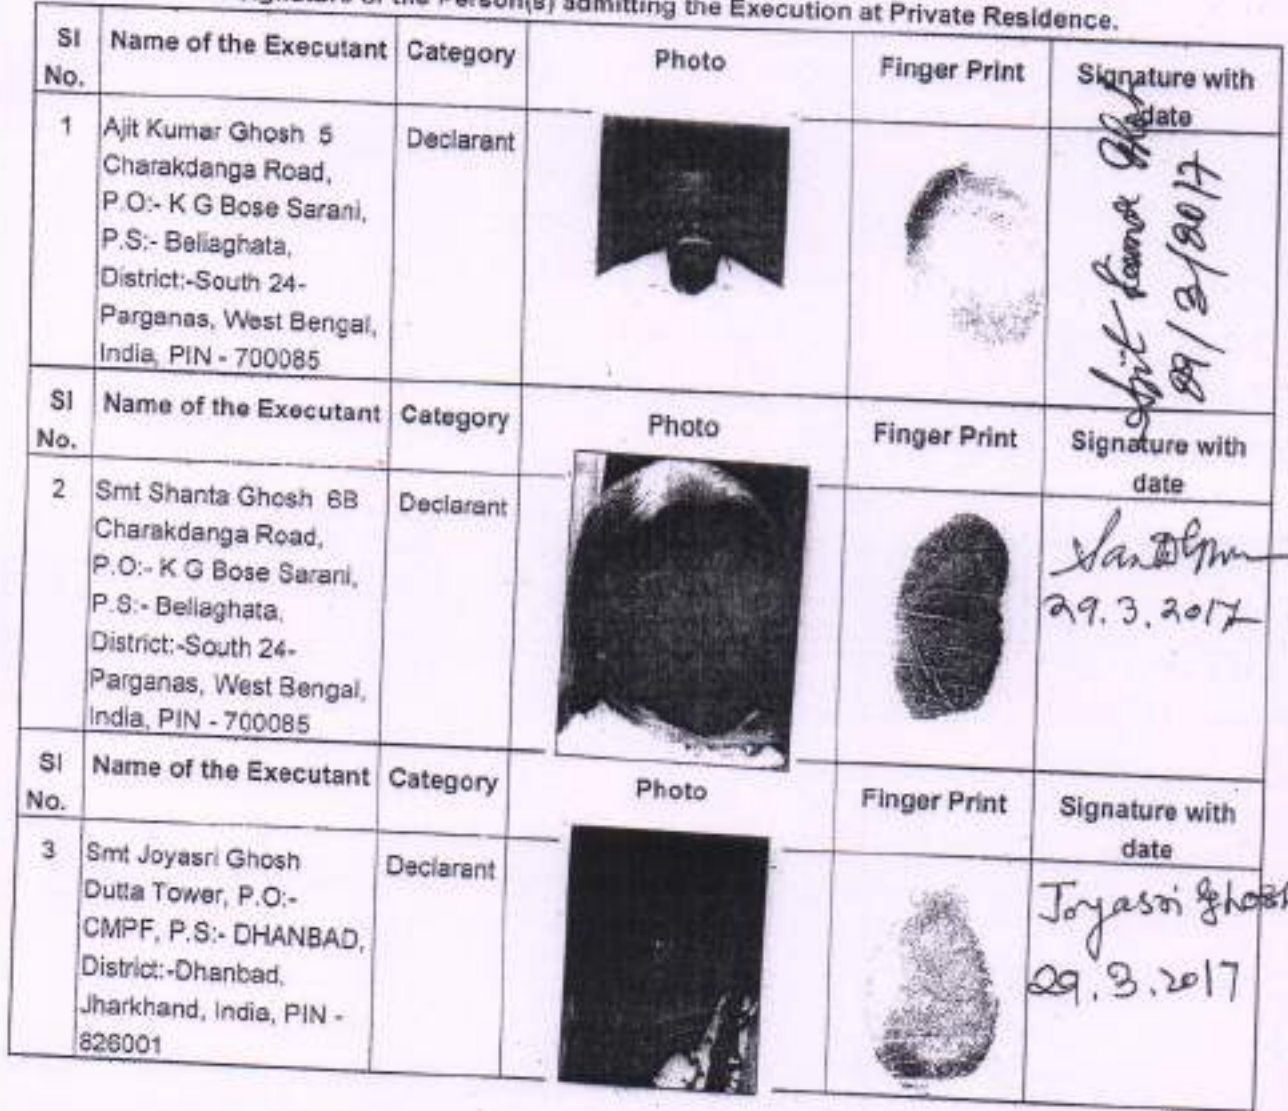 Signature of the Person(s) admitting the Execution at Private Residence.
Sl No. Name of the Executant Category Photo Finger Print Signature with date
1 Ajit Kumar Ghosh 5 Declarant
Charakdanga Road,
P.O:- K G Bose Sarani,
P.S:- Beliaghata,
District:-South 24-
Parganas, West Bengal,
India, PIN - 700085
Ajit Kumar Ghosh
29/3/2017
Sl No. Name of the Executant Category Photo Finger Print Signature with date
2 Smt Shanta Ghosh 6B Declarant
Charakdanga Road,
P.O:- K G Bose Sarani,
P.S:- Beliaghata,
District:-South 24-
Parganas, West Bengal,
India, PIN - 700085
29.3.2017
Sl No. Name of the Executant Category Photo Finger Print Signature with date
3 Smt Joyasri Ghosh Declarant
Dutta Tower, P.O:-
CMPF, P.S:- DHANBAD,
District:-Dhanbad,
Jharkhand, India, PIN -
826001
Joyasri Ghosh
29.3.2017